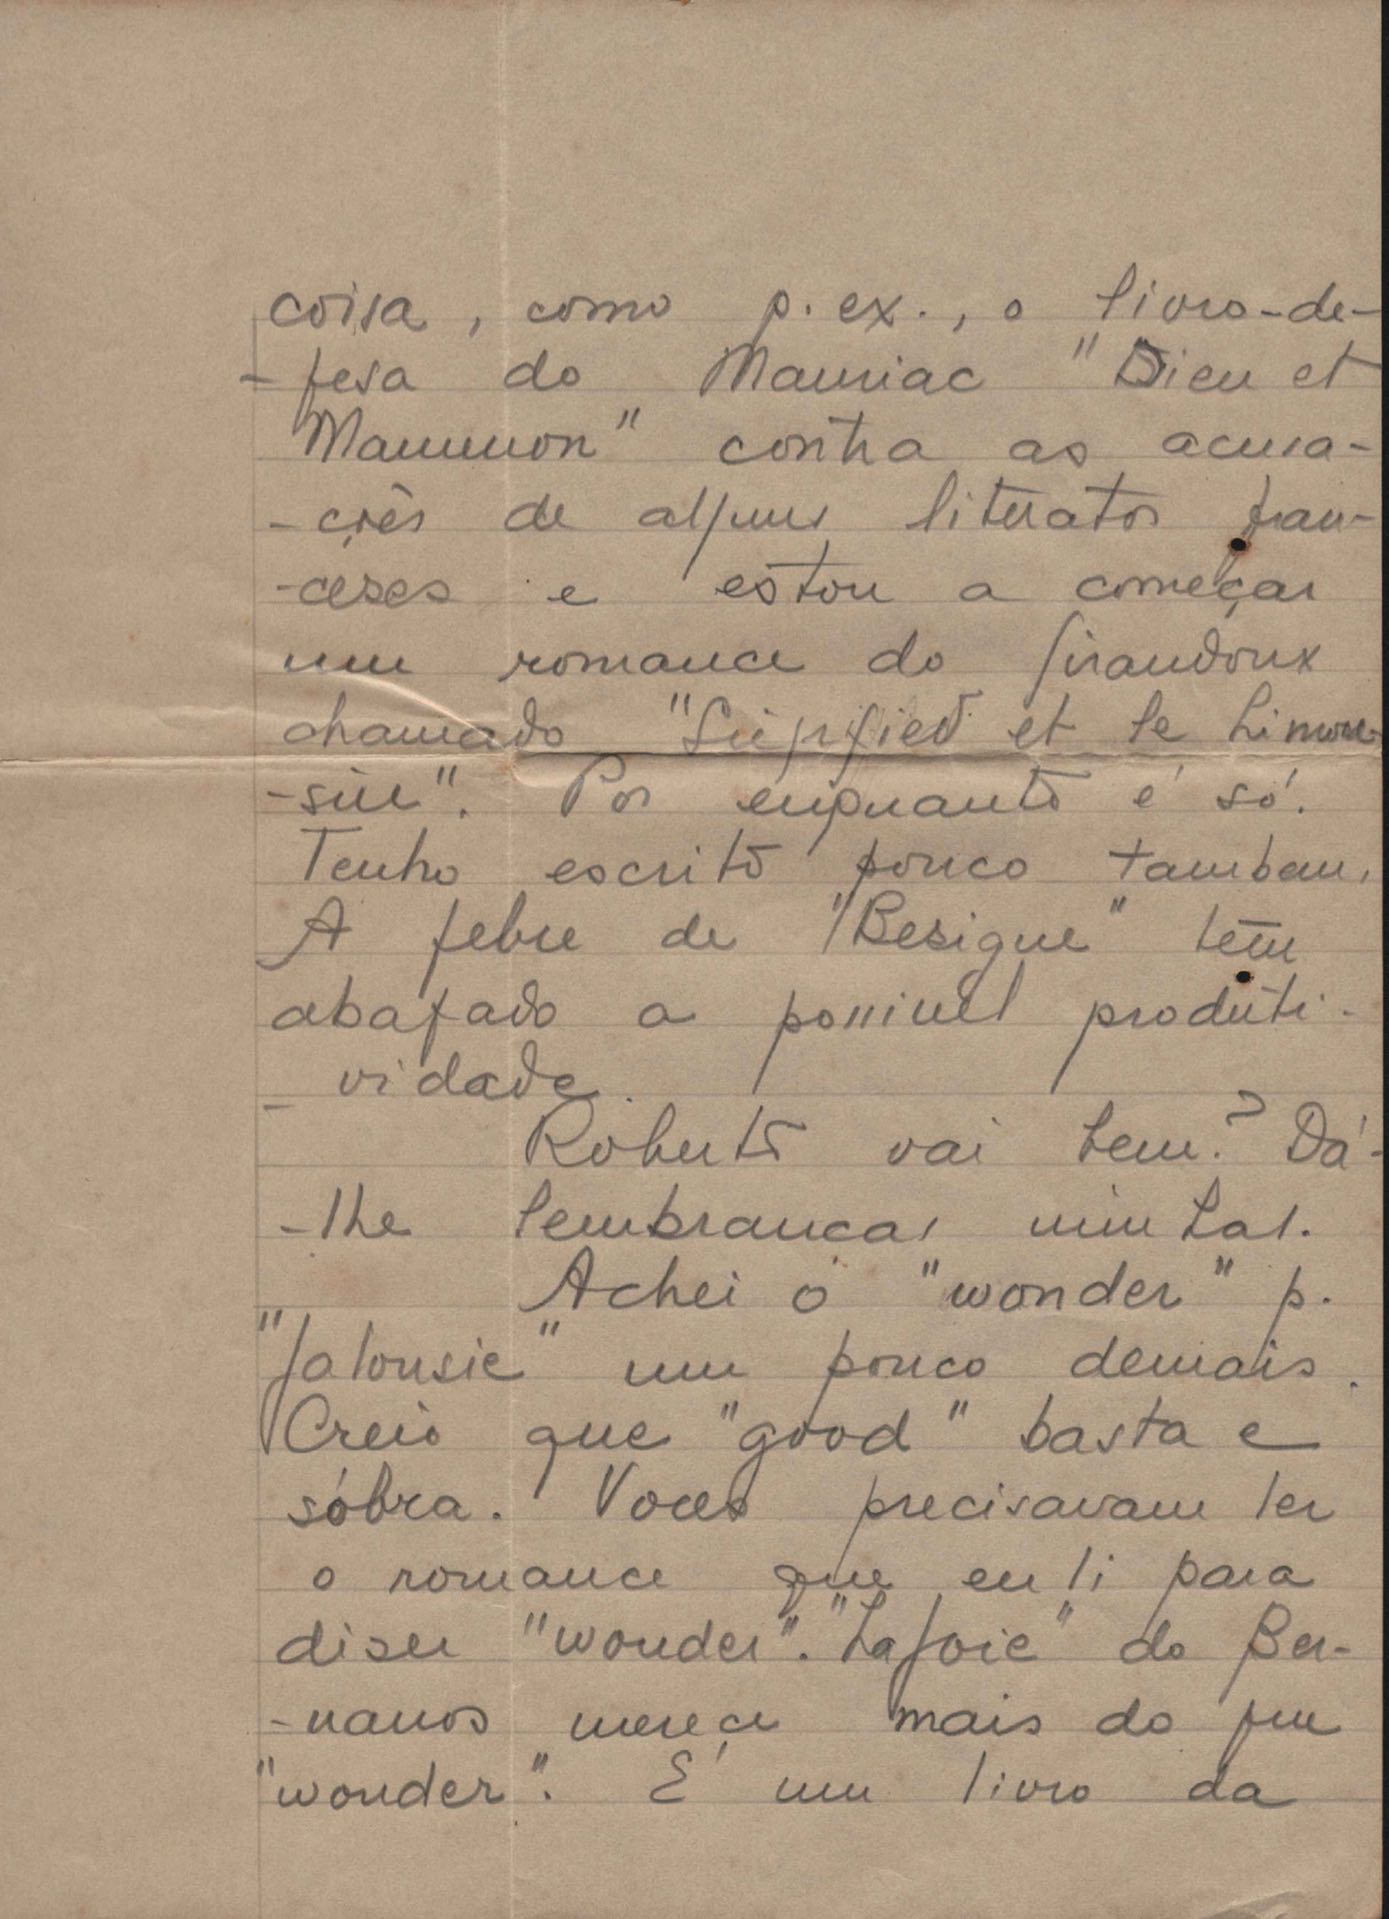 coisa, como p. ex., o livro-de-
-fesa do Mauriac "Dieu et
Mammon" contra as acusa-
-ções de alguns literatos fran-
-ceses e estou a começar
um romance do Giraudoux
chamado "Siegfried et le Limou-
-sin". Por enquanto é só.
Tenho escrito pouco tambem.
A febre de "Besigue" tem
abafado a possivel produti-
-vidade.
Roberto vai bem? Dá-
-lhe lembranças minhas.
Achei o "wonder" p.
"Jalousie" um pouco demais.
Creio que "good" basta e
sóbra. Voces precisavam ler
o romance que eu li para
diser "wonder". "La Joie" do Ber-
-nanos merece mais do que
"wonder". É um livro da